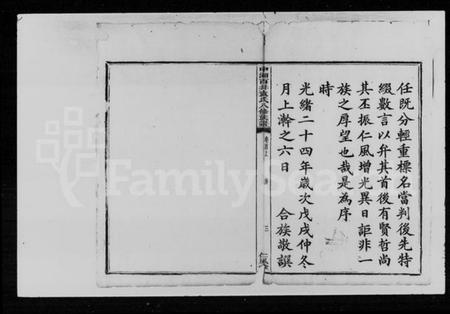 任既分輕重標名當判後先特
綴數言以弁其首後有賢哲尚
其丕振仁風增光異日詎非一
族之厚望也哉是為序
時
光緒二十四年歲次戊戌仲冬
月上澣之六日　合族敬譔
中湘百井袁氏八修族譜
卷首上
序
三
FamilySearch